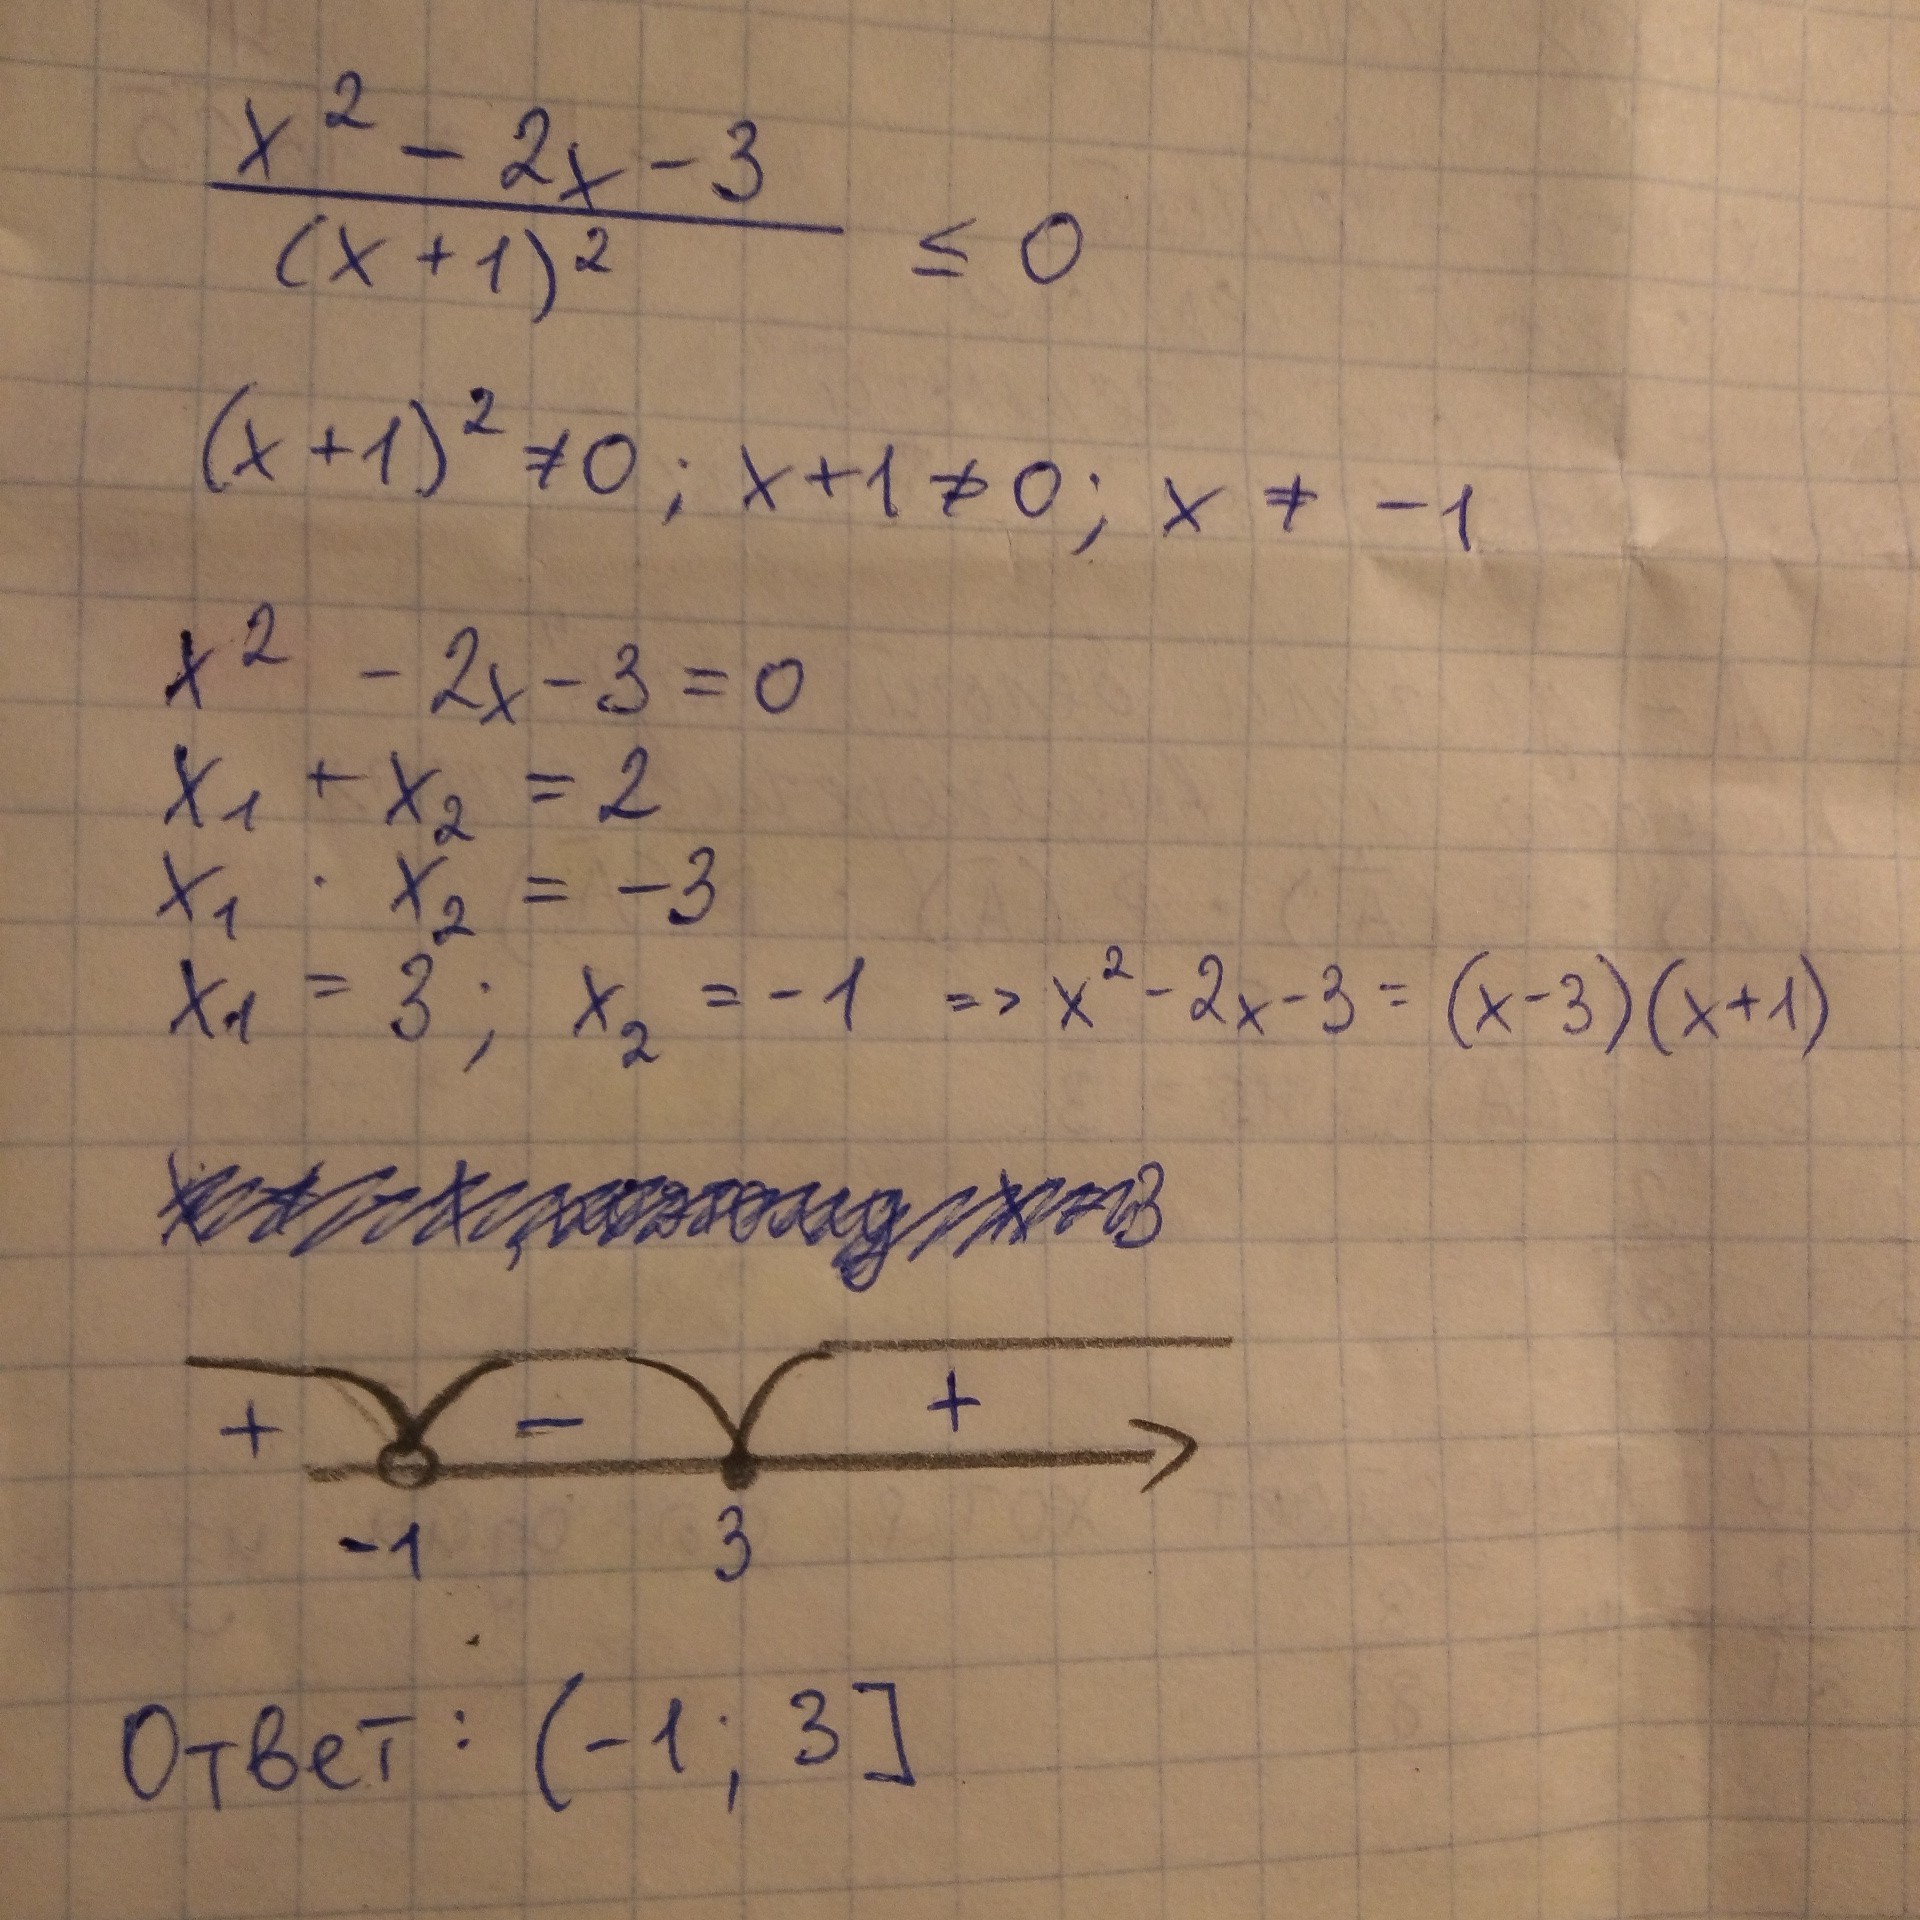 x² - 2x - 3
(x + 1)² ≤ 0
(x + 1)² ≠ 0; x + 1 ≠ 0; x ≠ -1
x² - 2x - 3 = 0
x₁ + x₂ = 2
x₁ · x₂ = -3
x₁ = 3; x₂ = -1 => x² - 2x - 3 = (x - 3)(x + 1)
+ - +
-1 3
Ответ: (-1; 3]